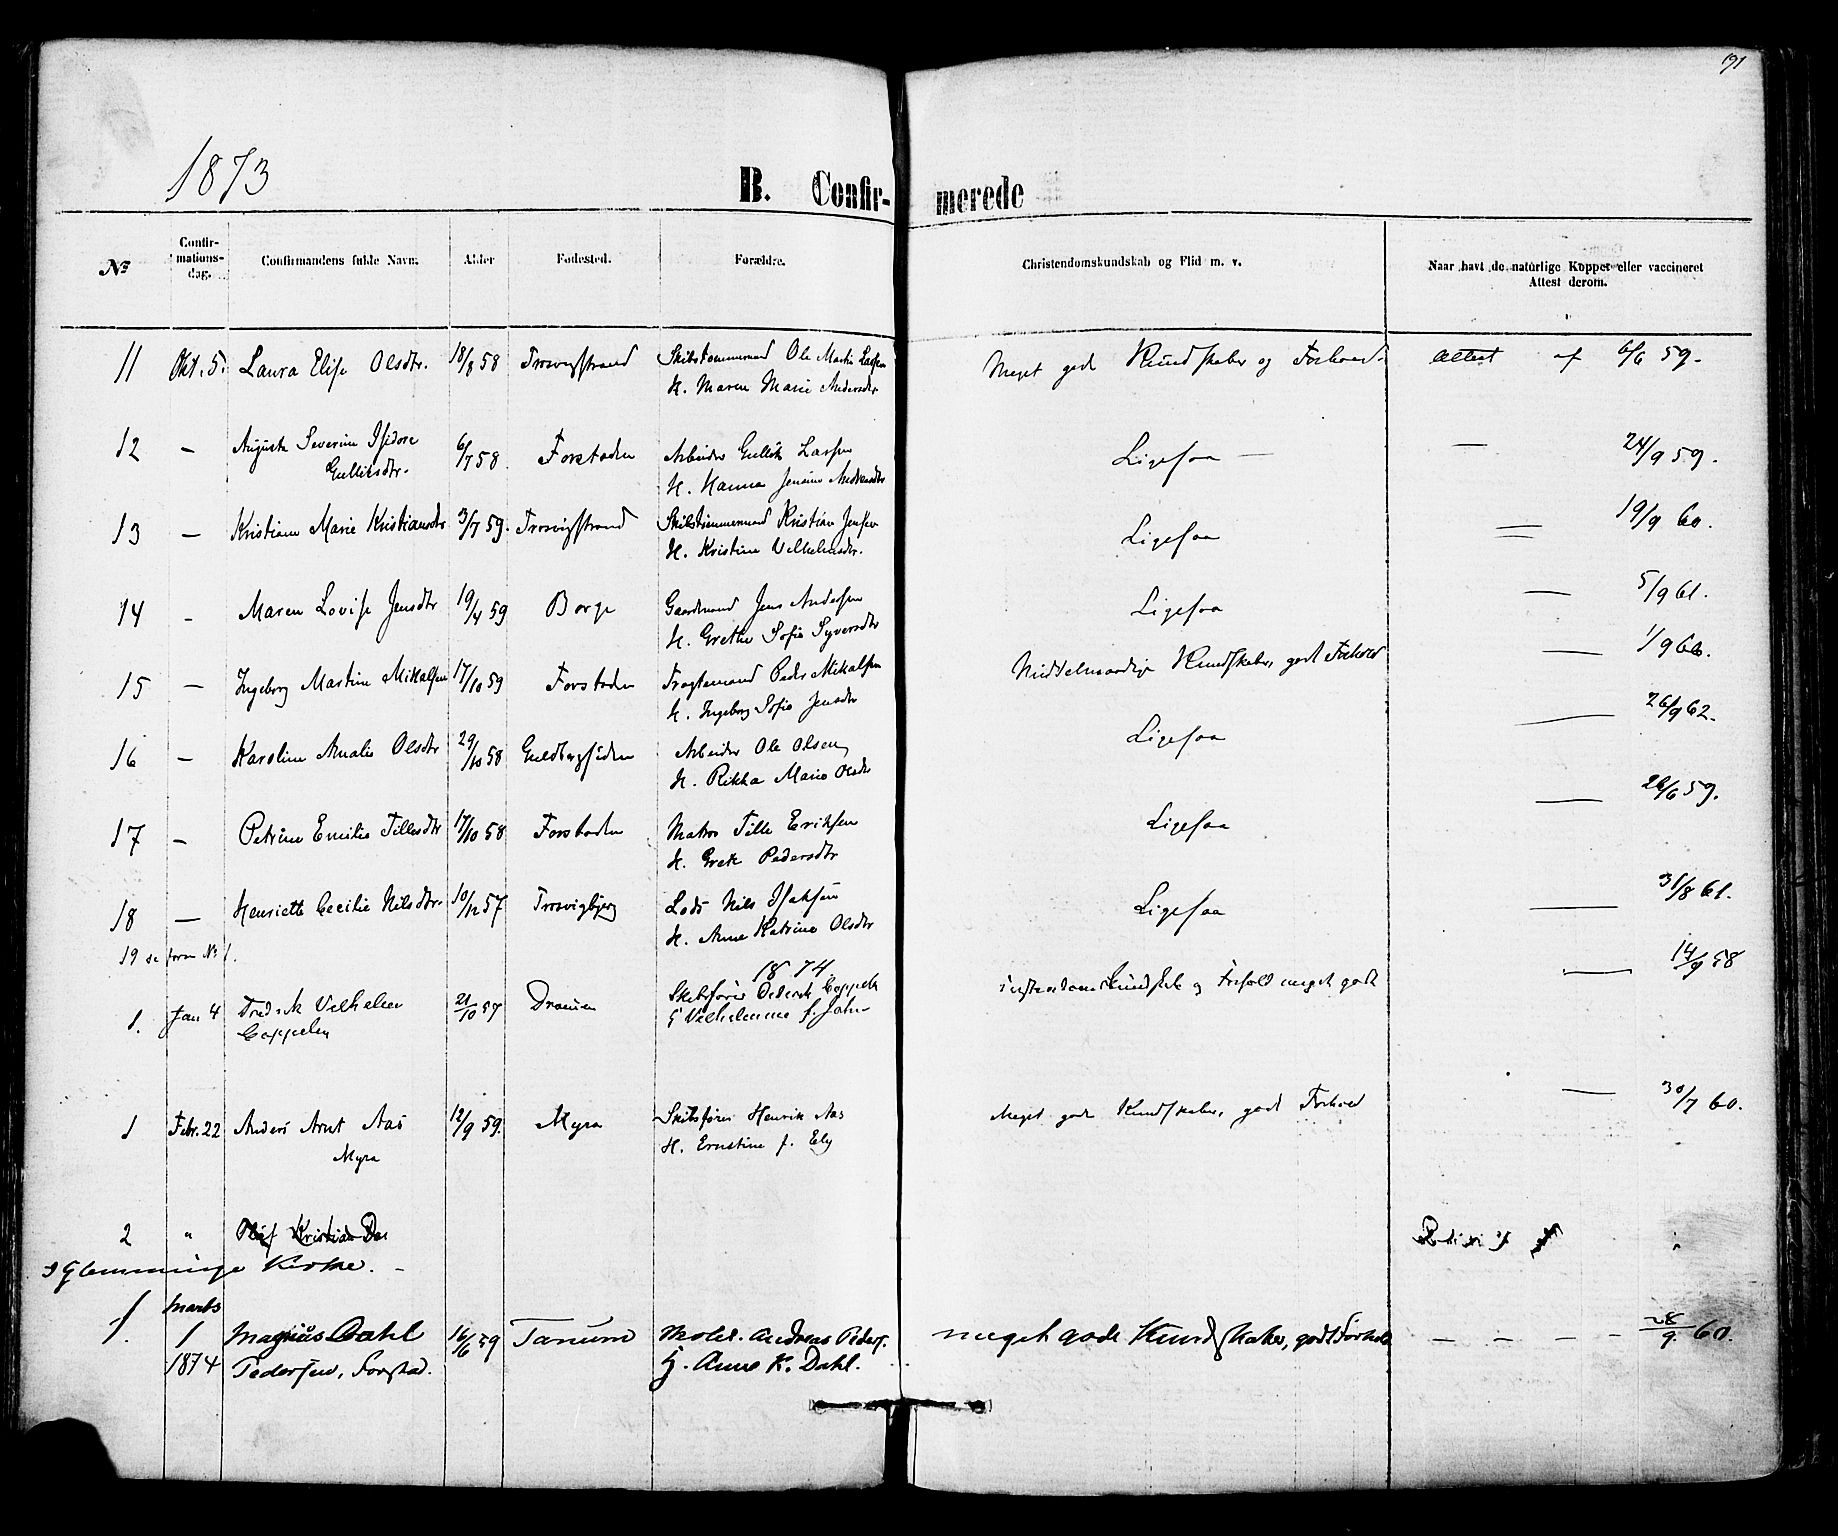 191
1873
B. Confir-
merede
No
Confir-
mations-
dag.
Confirmandens fulde Navn.
Alder
Fødested.
Forældre.
Christendomskundskab og Flid m. v.
Naar havt de naturlige Kopper eller vaccineret
Attest derom.
11 Okt. 5. Laura Elise Olsdtr. 18/8 58 Trosvigstrand Skibstømmermand Ole Martin Larsen Meget gode Kundskaber og Forhold. Attest af 6/6 59.
H. Maren Marie Andersdtr
12 - Augusta Severine Isidore 6/7 58. Forstaden Arbeider Gullik Larsen Ligesaa — — 24/9 59.
Gulliksdtr. H. Hanna
13 - Kristiane Marie Kristiansdtr 3/7 59. Trosvigstrand Skibstømmermand Kristian Jensen Ligesaa — 19/9 60.
H. Kristine Vilhelmsdtr.
14 - Maren Lovise Jensdtr 19/4 59 Borge Gaardmand Jens Andersen Ligesaa — 5/9 61.
H. Grethe Sofie Syversdtr
15 - Ingeborg Martine Mikalsen 17/10 59 Forstaden Peder Mikalsen Middelmaadige Kundskaber, godt Forhold — 1/9
H. Ingeborg Sofie Jensdtr
16 - Karoline Amalie Olsdtr 29/10 58 Guldbergsiden Arbeider Ole Olsen Ligesaa — 26/9 62.
H. Rikka Marie Olsdtr
17 - Petrine Emilie Tillesdtr 17/10 58 Forstaden Matros Tille Eriksen Ligesaa — 26/6 59.
H. Grete Pedersdtr
18 - Henriette Cecilie Nilsdtr. 10/12 57 Trosvigbjerg Lods Nils Isaksen Ligesaa — 31/8 61.
H. Anne Katrine Olsdtr
19 se foran No 1.
1874
1. Jan 4 Fredrik Vilhelm 21/10 57 Dramen Skibsfører Diderik Cappelen Kundskab og Forhold meget godt — 14/9 58
Cappelen H Vilhelmine f.
1 Febr. 22 Anders Arnt Aas 12/9 59. Myra Skibsfører Henrik Aas Meget gode Kundskaber, godt Forhold — 30/7 60.
Myra H. Ernstine f. Ely
2 " Olaf Kristian
I Glemminge Kirke. -
1. Marts
1 Magnus Dahl 16/6 59 Tanum Andreas Peders. meget gode Kundskaber, godt Forhold - - - - 28/9 60.
1874 Pedersen, Forstad. H. Anne K. Dahl.